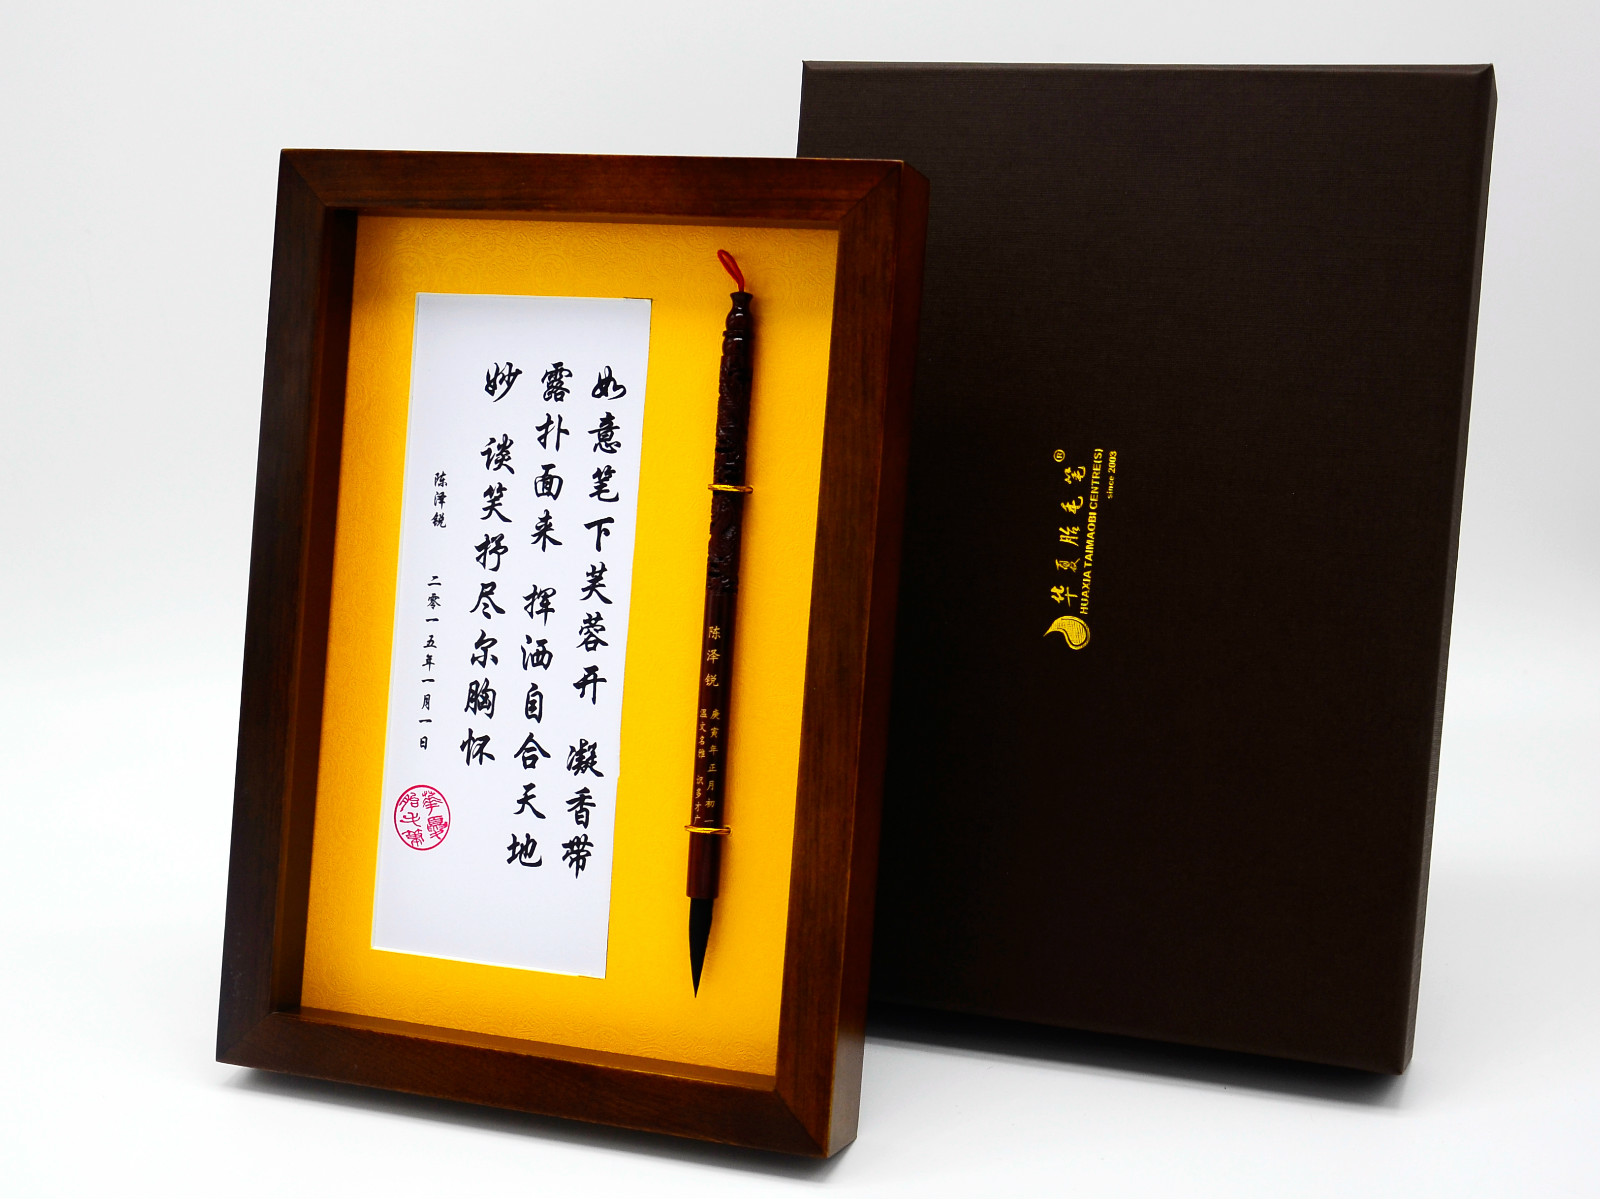 如意笔下芙蓉开 凝香带
露扑面来 挥洒自合天地
妙 谈笑抒尽尔胸怀
陈泽锐 二零一五年一月一日
华夏胎毛笔
陈泽锐
庚寅年正月初一
温文名雅 识多才广
华夏胎毛笔®
HUAXIA TAIMAOBI CENTRE(S)
since 2003